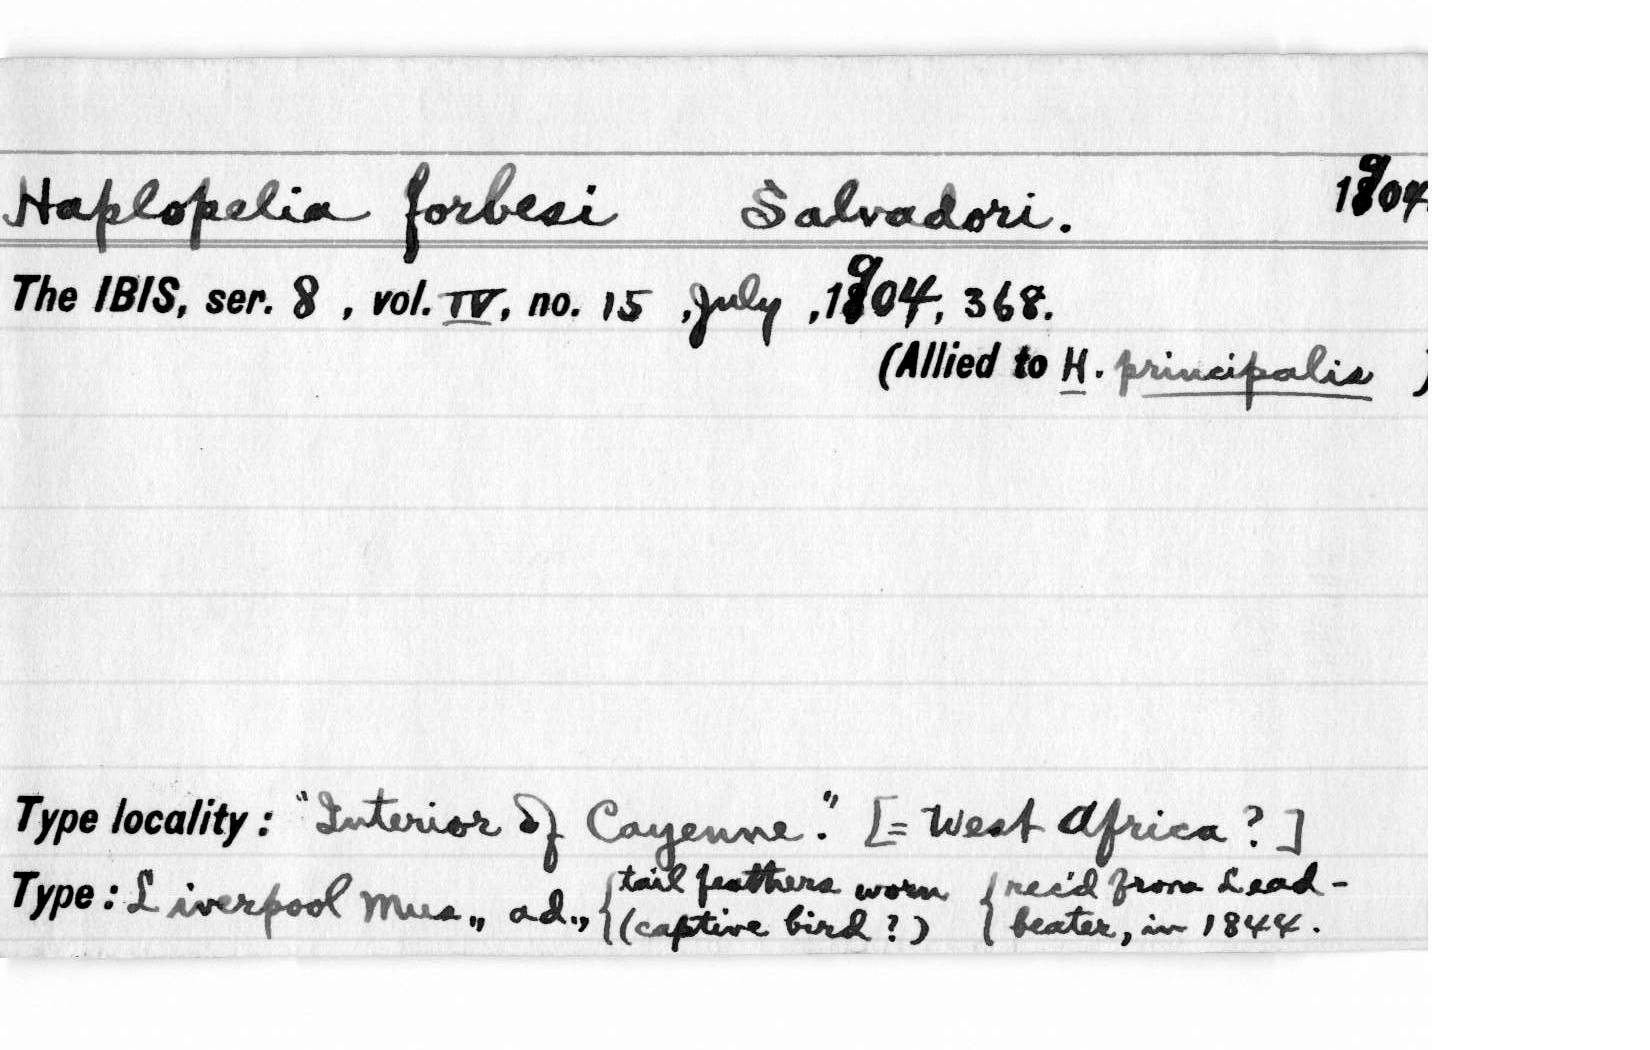 Haplopelia forbesi Salvadori. 1904.
The IBIS, ser. 8, vol. IV, no. 15, July, 1904, 368.
(Allied to H. principalis )
Type locality: "Interior of Cayenne." [= West Africa ? ]
Type: Liverpool Mus., ad., { tail feathers worn { rec'd from Lead-
(captive bird ? ) beater, in 1844.